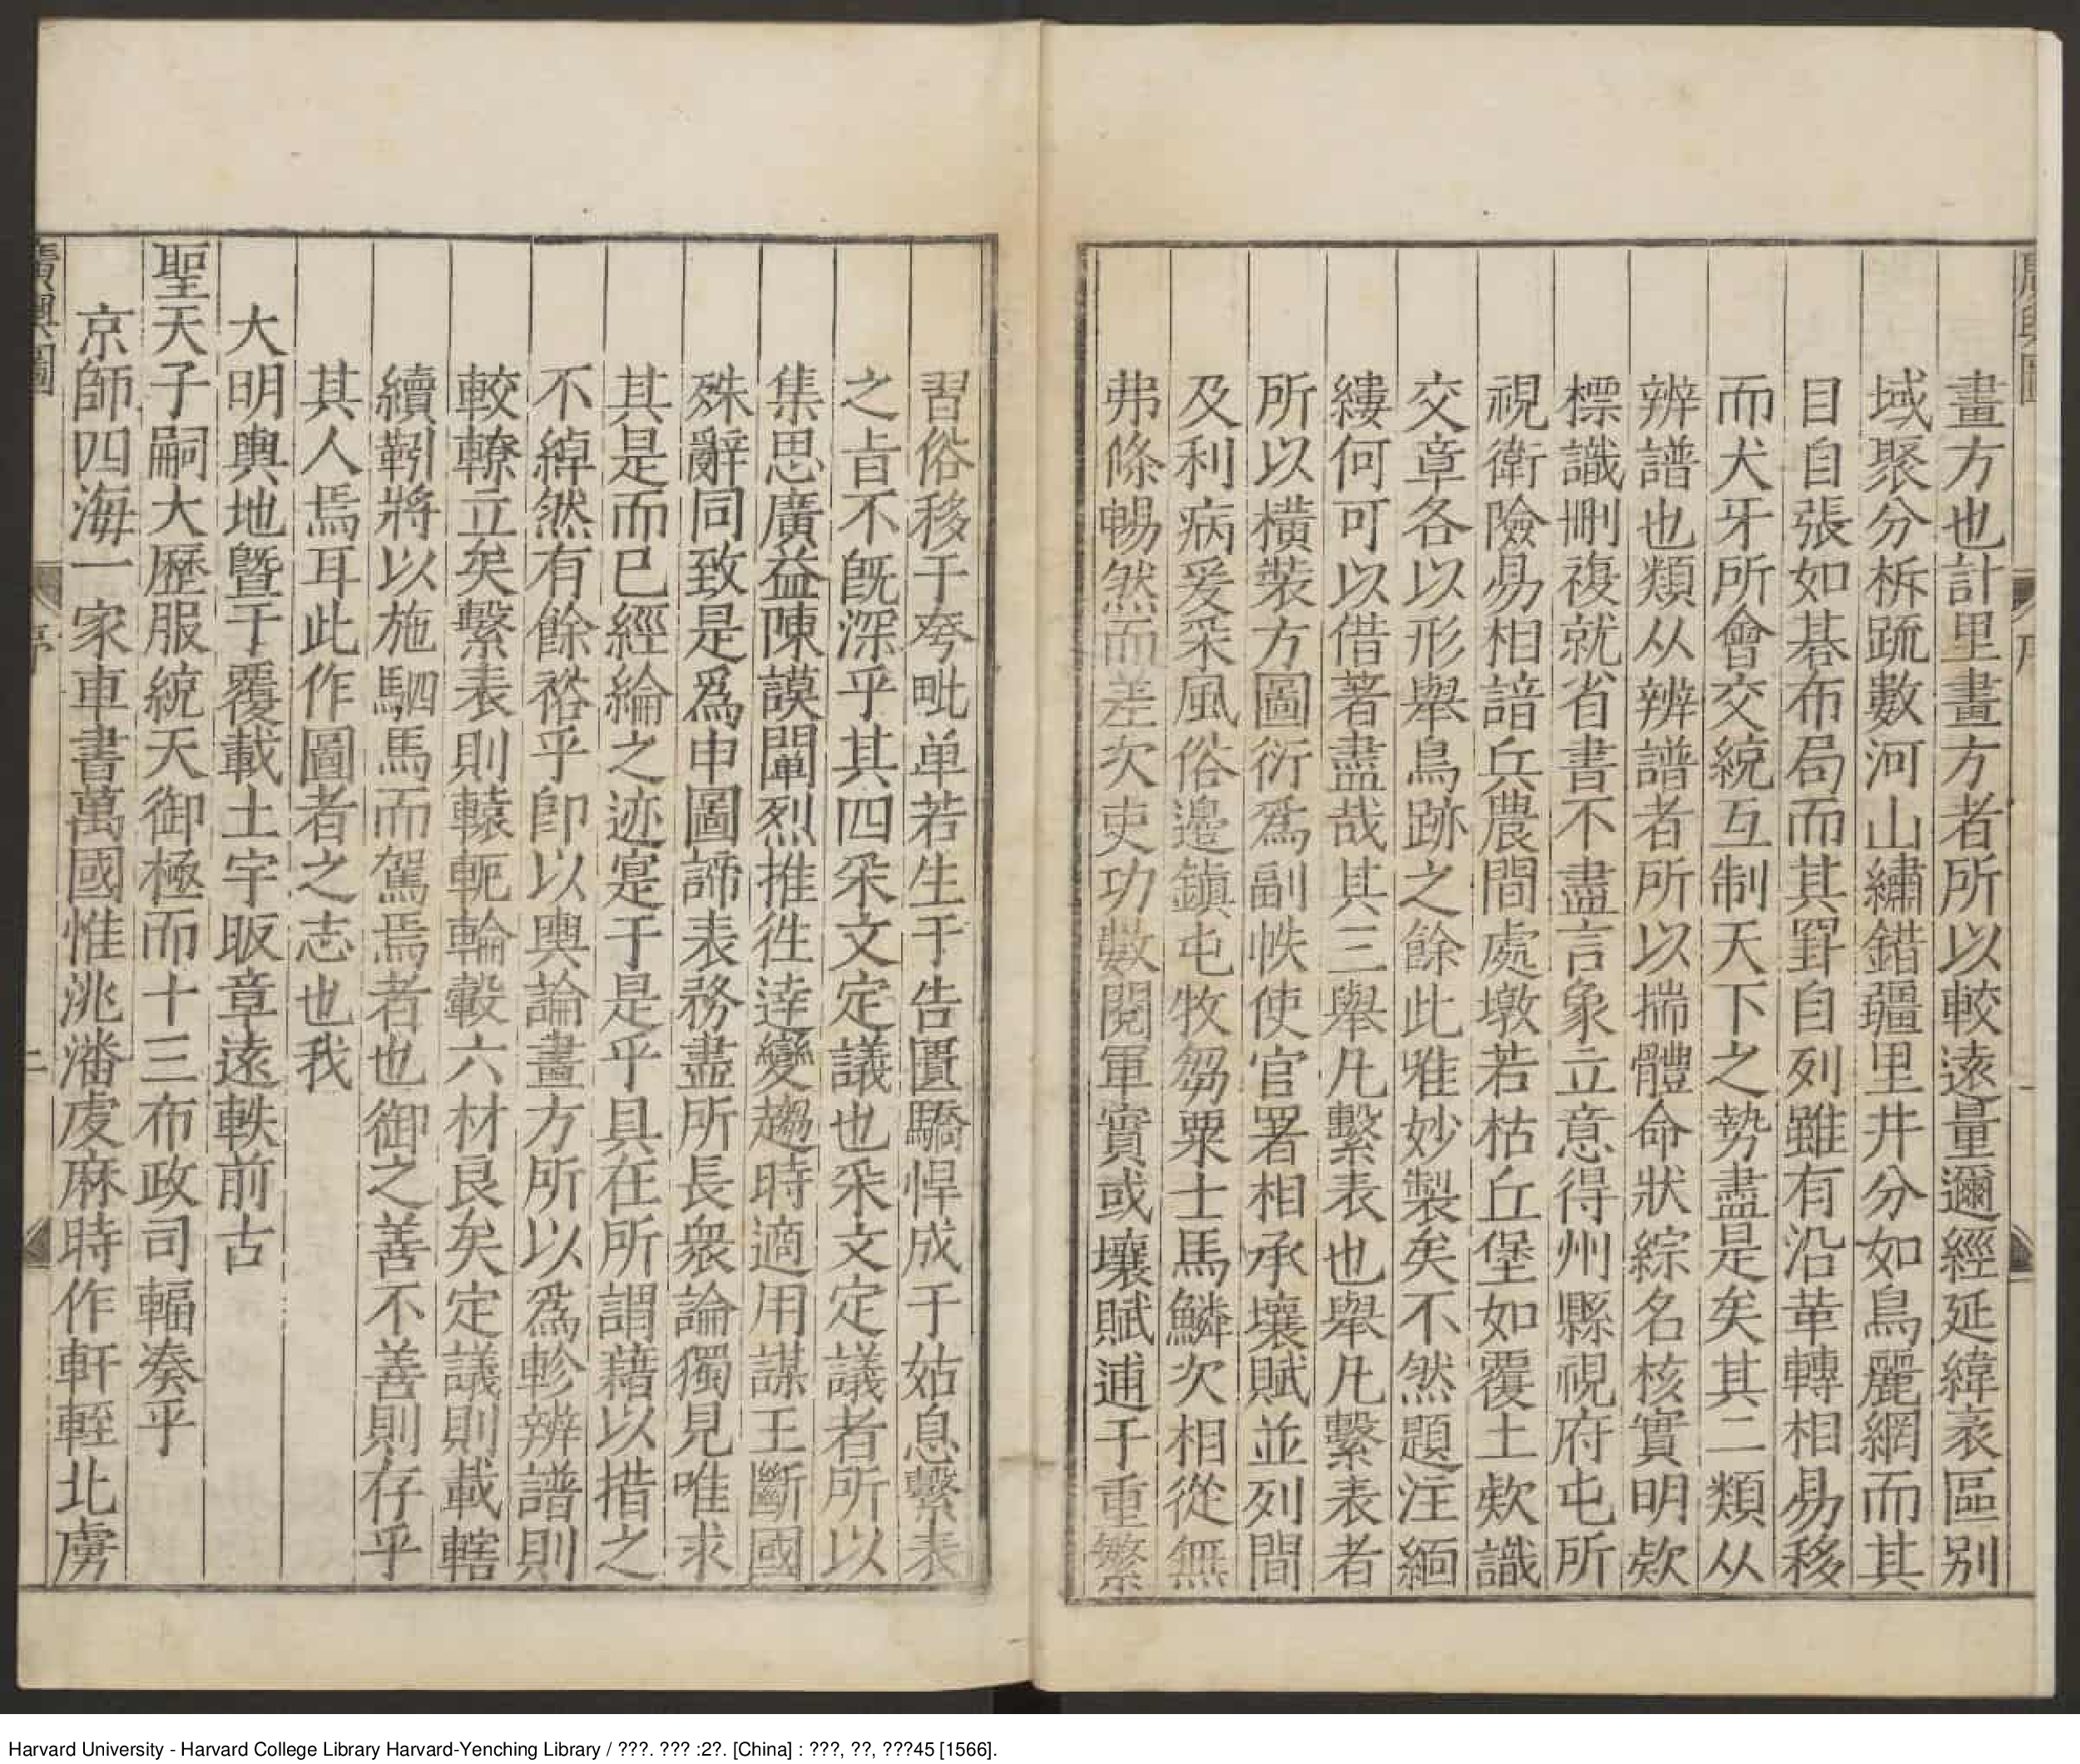 畫方也計里畫方者所以較遠量邇經延緯袤區別
域聚分柝䟽數河山繡錯疆里井分如鳥麗網而其
目自張如棊布局而其罫自列雖有沿革轉相易移
而犬牙所會交統互制天下之勢盡是矣其二類从
辨譜也類从辨譜者所以揣體命狀綜名核實明欵
標識刪複就省書不盡言象立意得州縣視府屯所
視衛險易相諳兵農間處墩若枯丘堡如覆土欵識
交章各以形舉鳥跡之餘此唯妙製矣不然題注緬
縷何可以借著盡哉其三舉凡繫表也舉凡繫表者
所以橫裝方圖衍爲副帙使官署相承壤賦並列間
及利病爰采風俗邊鎮屯牧芻粟士馬鱗次相從無
弗條暢然而差次吏功數閱軍實或壤賦逋于重繁
習俗移于夸毗单若生于告匱驕悍成于姑息繫表
之㫖不既深乎其四采文定議也采文定議者所以
集思廣益陳謨闡烈推徃逹變趨時適用謀王斷國
殊辭同致是爲申圖諦表務盡所長衆論獨見唯求
其是而已經綸之迹寔于是乎具在所謂藉以措之
不綽然有餘裕乎卽以輿論畫方所以爲軫辨譜則
較轑立矣繫表則轅軛輪轂六材良矣定議則載轄
續靷將以施駟馬而駕焉者也御之善不善則存乎
其人焉耳此作圖者之志也我
大明輿地曁于覆載土宇昄章遠軼前古
聖天子嗣大歷服統天御極而十三布政司輻湊乎
京師四海一家車書萬國惟洮潘虔麻時作軒輊北虜
廣輿圖
序
二